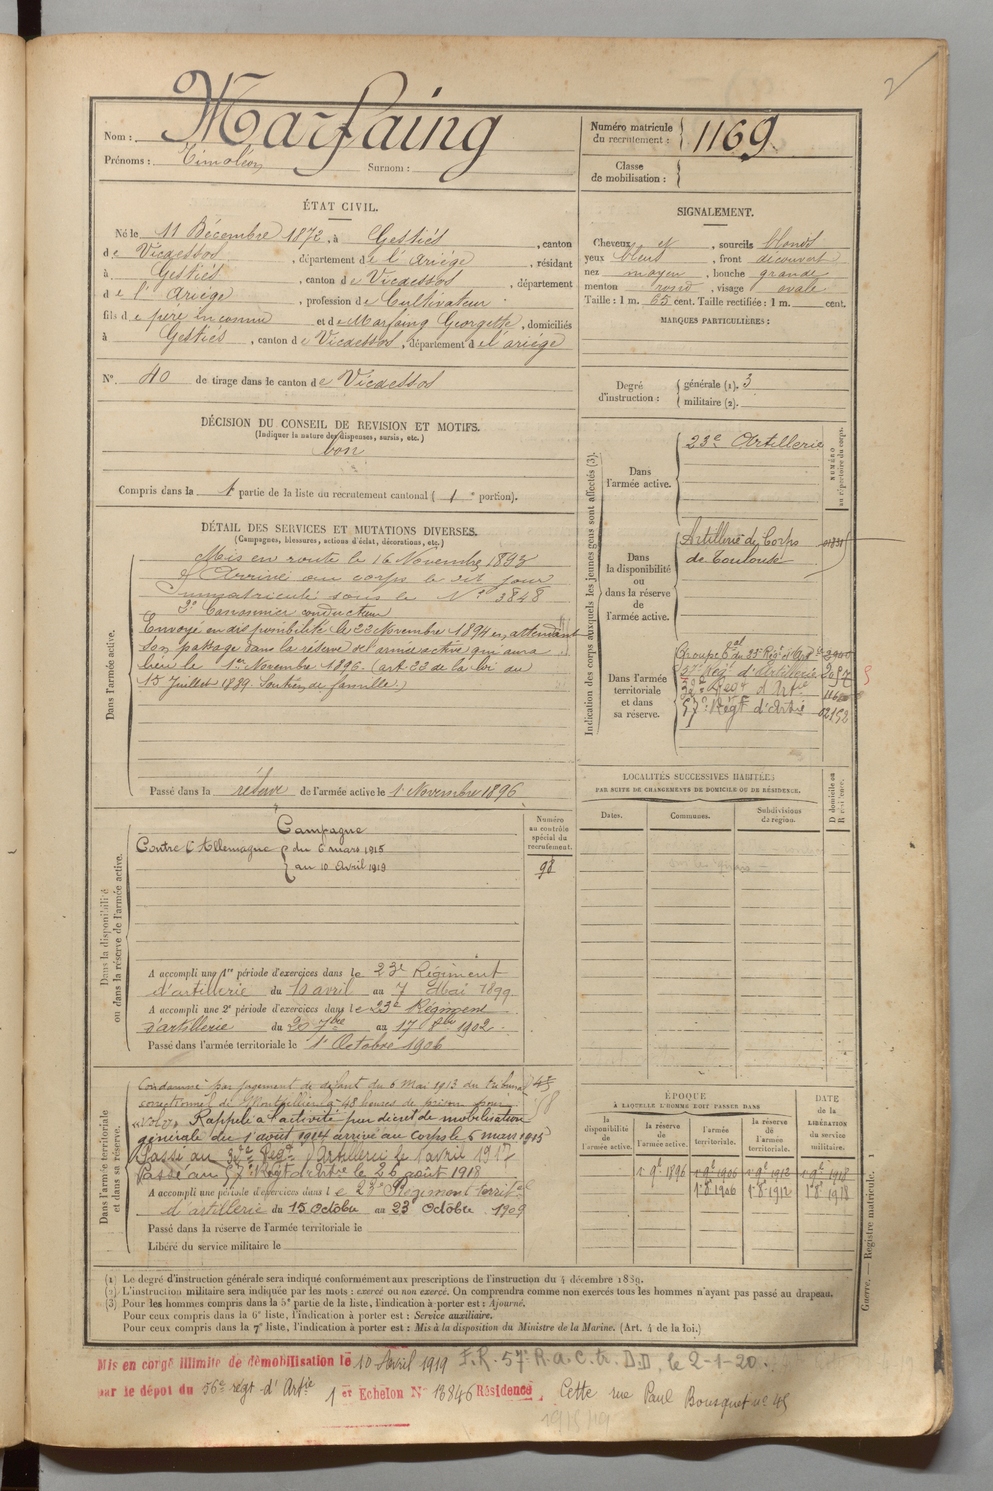 2
Nom : Marfaing
Prénoms : Timoléon Surnom :
Numéro matricule du recrutement : 1169
Classe de mobilisation :
ÉTAT CIVIL.
Né le 11 Décembre 1872, à Gestiés, canton
de Vicdessos, département de l'Ariège, résidant
à Gestiés, canton de Vicdessos, département
de l'Ariège, profession de Cultivateur
fils de père inconnu et de Marfaing Georgette, domiciliés
à Gestiés, canton de Vicdessos, département de l'ariège
N° 40 de tirage dans le canton de Vicdessos
SIGNALEMENT.
Cheveux et, sourcils blonds
yeux bleus, front découvert
nez moyen, bouche grande
menton rond, visage ovale
Taille : 1 m. 65 cent. Taille rectifiée : 1 m. cent.
MARQUES PARTICULIÈRES :
Degré d'instruction : générale (1). 3
militaire (2).
DÉCISION DU CONSEIL DE REVISION ET MOTIFS.
(Indiquer la nature des dispenses, sursis, etc.)
bon
Compris dans la 1 partie de la liste du recrutement cantonal ( 1 e portion).
DÉTAIL DES SERVICES ET MUTATIONS DIVERSES.
(Campagnes, blessures, actions d'éclat, décorations, etc.)
Dans l'armée active.
Mis en route le 16 Novembre 1893
Arrivé au corps le dit jour
Immatriculé sous le N° 3848
2e Canonnier conducteur
Envoyé en disponibilité le 23 Novembre 1894 en attendant
son passage dans la réserve de l'armée active qui aura
lieu le 1er Novembre 1896. (art. 22 de la loi du
15 Juillet 1889. Soutien de famille.)
Passé dans la réserve de l'armée active le 1 Novembre 1896
Indication des corps auxquels les jeunes gens sont affectés (3).
NUMÉRO au répertoire du corps.
Dans l'armée active.
23e Artillerie
Dans la disponibilité ou dans la réserve de l'armée active.
Artillerie de Corps
de Toulouse
Dans l'armée territoriale et dans sa réserve.
Groupe tal du 23e Rég. d'Artie
Rég. d'Artillerie
Régt d'Artie
57e Régt d'Artie
LOCALITÉS SUCCESSIVES HABITÉES
PAR SUITE DE CHANGEMENTS DE DOMICILE OU DE RÉSIDENCE.
Dates. Communes. Subdivisions de région.
D domicile ou R résidence.
Dans la disponibilité ou dans la réserve de l'armée active.
Numéro au contrôle spécial du recrutement.
98
Campagne
Contre l'Allemagne du 6 mars 1915
au 10 Avril 1919
A accompli une 1re période d'exercices dans le 23e Régiment
d'artillerie du 10 avril au 7 Mai 1899
A accompli une 2e période d'exercices dans le 23e Régiment
d'artillerie du 20 7bre au 17 8bre 1902
Passé dans l'armée territoriale le 1er Octobre 1906
Dans l'armée territoriale et dans sa réserve.
Condamné par jugement de défaut du 6 Mai 1913 du tribunal
correctionnel de Montpellier à 48 heures de prison pour
"vol" Rappelé à l'activité par décret de mobilisation
générale du 1 août 1914 arrivé au corps le 6 mars 1915
Passé au Régt d'Artillerie le 1 avril 1917
Passé au 57e Régt d'Artie le 25 août 1918
A accompli une période d'exercices dans le 23e Régiment territal
d'artillerie du 15 Octobre au 23 Octobre 1909
Passé dans la réserve de l'armée territoriale le
Libéré du service militaire le
ÉPOQUE
À LAQUELLE L'HOMME DOIT PASSER DANS
la disponibilité de l'armée active. la réserve de l'armée active. l'armée territoriale. la réserve de l'armée territoriale. DATE de la LIBÉRATION du service militaire.
1er 9e 1896 1er 9e 1906 1er 9e 1912 1er 9e 1918
1er 8e 1906 1er 8e 1912 1er 8e 1918
(1) Le degré d'instruction générale sera indiqué conformément aux prescriptions de l'instruction du 4 décembre 1889.
(2) L'instruction militaire sera indiquée par les mots : exercé ou non exercé. On comprendra comme non exercés tous les hommes n'ayant pas passé au drapeau.
(3) Pour les hommes compris dans la 5e partie de la liste, l'indication à porter est : Ajourné.
Pour ceux compris dans la 6e liste, l'indication à porter est : Service auxiliaire.
Pour ceux compris dans la 7e liste, l'indication à porter est : Mis à la disposition du Ministre de la Marine. (Art. 4 de la loi.)
Guerre. — Registre matricule. 1
Mis en congé illimité de démobilisation le 10 Avril 1919 F.R. 57e R.a.c. tr. D.D, le 2-1-20.
par le dépôt du 56e régt d'Artie 1er Echelon N° 13846 Résidence, Cette rue Paul Bousquet n° 45